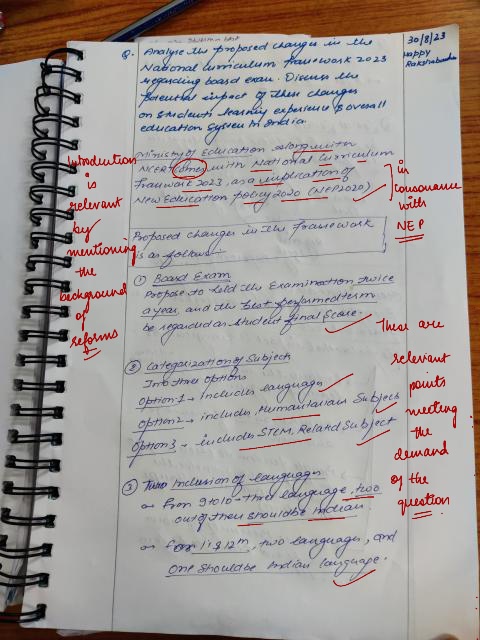 30/8/23
Happy
Rakshabandhan
Q. Analyse the proposed changes in the
National curriculum framework 2023
regarding board exam. Discuss the
potential impact of these changes
on students learning experience & overall
education system in India.
Ministry of Education along with
NCERT comes with National Curriculum
framework 2023, as a implication of
New Education policy 2020 (NEP2020)
Proposed changes in the framework
is as follows
① Board Exam
Propose to held the Examination twice
a year, and the best performed term
be regarded as student final score.
② Categorization of Subject
Into three options
Option 1 → includes language
Option 2 → includes Humanitarian Subject
Option 3 → includes STEM, Related Subject
③ Inclusion of languages
from 9 to 10 - three language, two
out of them should be Indian.
for 11 & 12th, two languages, and
one should be Indian language.
Introduction
is
relevant
by
mentioning
the
background
of
reforms
in
consonance
with
NEP
These are
relevant
points
meeting
the
demand
of the
question